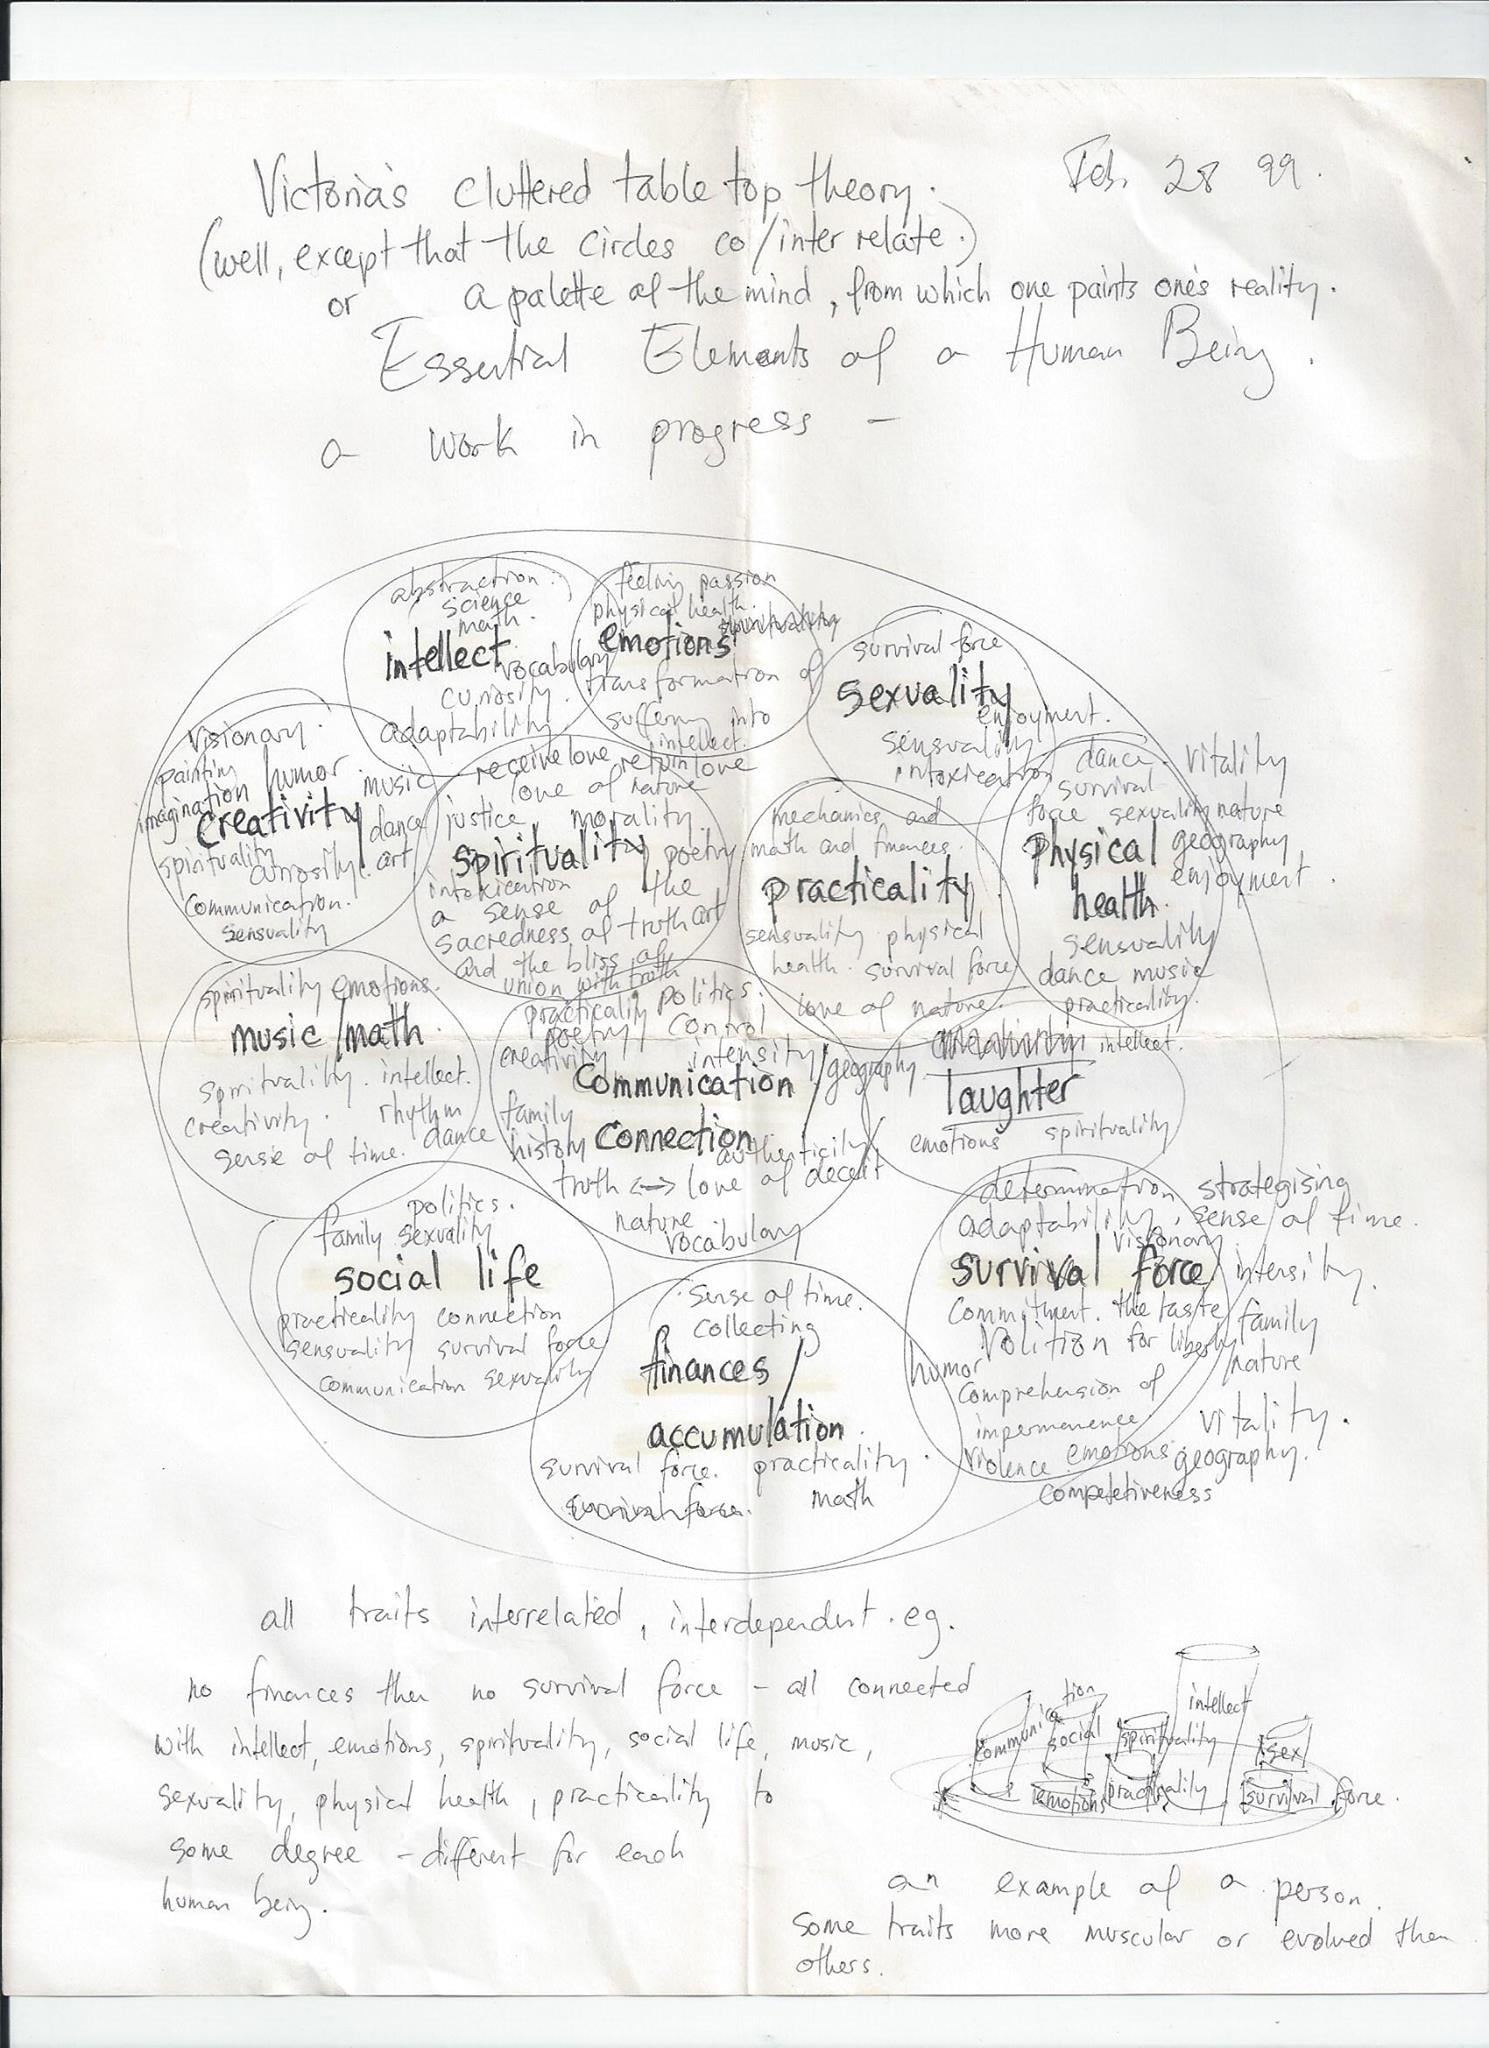 Victoria's cluttered table top theory. Feb. 28 99.
(well, except that the circles co/inter relate.)
or a palette of the mind, from which one paints one's reality.
Essential Elements of a Human Being.
a work in progress –
abstraction.
science
math.
intellect
vocabulary
curiosity.
adaptability
feeling passion
physical health.
spirituality
emotions
transformation of
suffering into
intellect.
survival force
sexuality
enjoyment.
sensuality
intoxication
visionary.
painting
humor
imagination
music
creativity
dance
spirituality
curiosity.
art
communication.
sensuality
receive love return love
love of nature
justice morality.
spirituality poetry
intoxication
a sense of the
sacredness of truth art
and the bliss of
union with truth
mechanics and
math and finances.
practicality
sensuality physical
health. survival force
love of nature.
dance. vitality
survival
force sexuality nature
physical geography
enjoyment.
health.
sensuality
dance music
practicality.
spirituality emotions.
music/math
spirituality. intellect.
creativity. rhythm
sense of time. dance
practicality politics.
poetry control
creativity intensity
communication/geography
family
history connection
authenticity
truth <-> love of deceit
nature
vocabulary
intellect.
laughter
emotions spirituality
politics.
family sexuality
social life
practicality connection
sensuality survival force
communication sexuality
sense of time.
collecting
finances/
accumulation.
survival force. practicality.
survival force. math
determination strategising
adaptability, sense of time.
visionary
survival force intensity.
commitment. the taste family
volition for liberty nature
humor
comprehension of
impermanence. vitality.
violence emotions geography.
competetiveness
all traits interrelated, interdependent. eg.
no finances then no survival force – all connected
with intellect, emotions, spirituality, social life, music,
sexuality, physical health, practicality to
some degree – different for each
human being.
communication
social
spirituality
intellect
sex
emotions
practicality
survival force.
an example of a person.
some traits more muscular or evolved then
others.